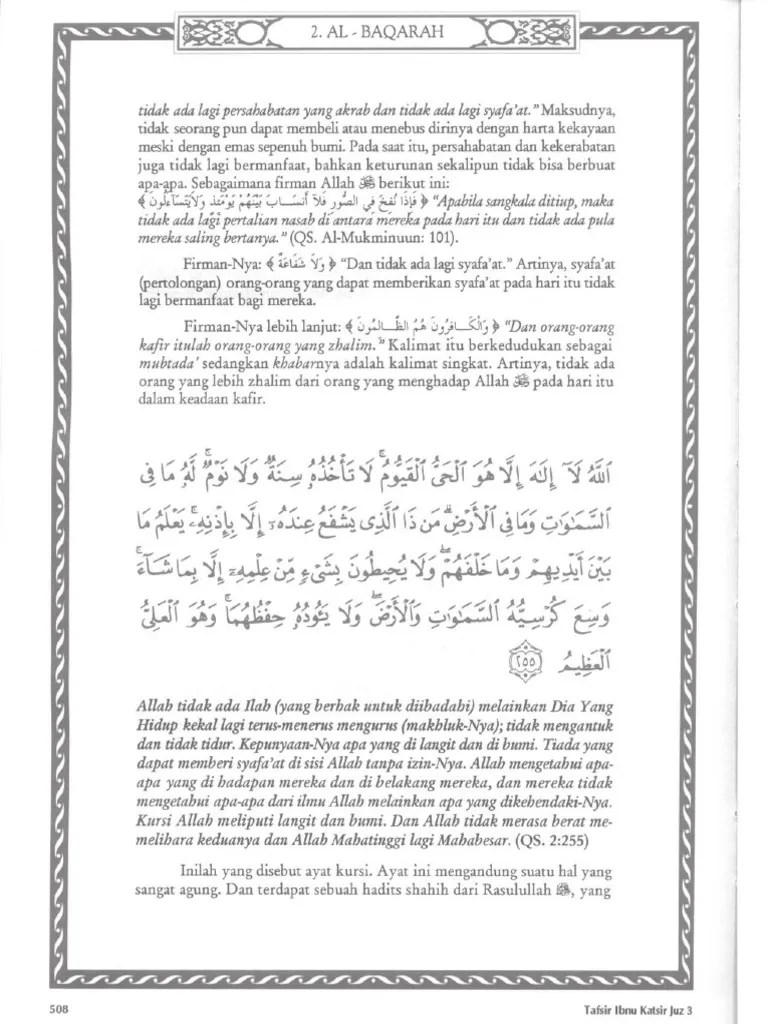 2. AL - BAQARAH
tidak ada lagi persahabatan yang akrab dan tidak ada lagi syafa'at." Maksudnya,
tidak seorang pun dapat membeli atau menebus dirinya dengan harta kekayaan
meski dengan emas sepenuh bumi. Pada saat itu, persahabatan dan kekerabatan
juga tidak lagi bermanfaat, bahkan keturunan sekalipun tidak bisa berbuat
apa-apa. Sebagaimana firman Allah ﷻ berikut ini:
﴿ فَإِذَا نُفِخَ فِي الصُّورِ فَلاَ أَنسَابَ بَيْنَهُمْ يَوْمَئِذٍ وَلاَيَتَسَاءَلُونَ ﴾ "Apabila sangkala ditiup, maka
tidak ada lagi pertalian nasab di antara mereka pada hari itu dan tidak ada pula
mereka saling bertanya." (QS. Al-Mukminuun: 101).
Firman-Nya: ﴿ وَلاَ شَفَاعَةٌ ﴾ "Dan tidak ada lagi syafa'at." Artinya, syafa'at
(pertolongan) orang-orang yang dapat memberikan syafa'at pada hari itu tidak
lagi bermanfaat bagi mereka.
Firman-Nya lebih lanjut: ﴿ وَالْكَافِرُونَ هُمُ الظَّالِمُونَ ﴾ "Dan orang-orang
kafir itulah orang-orang yang zhalim." Kalimat itu berkedudukan sebagai
mubtada' sedangkan khabarnya adalah kalimat singkat. Artinya, tidak ada
orang yang lebih zhalim dari orang yang menghadap Allah ﷻ pada hari itu
dalam keadaan kafir.
ٱللَّهُ لَآ إِلَٰهَ إِلَّا هُوَ ٱلْحَىُّ ٱلْقَيُّومُ ۚ لَا تَأْخُذُهُۥ سِنَةٌ وَلَا نَوْمٌ ۚ لَّهُۥ مَا فِى
ٱلسَّمَٰوَٰتِ وَمَا فِى ٱلْأَرْضِ ۗ مَن ذَا ٱلَّذِى يَشْفَعُ عِندَهُۥٓ إِلَّا بِإِذْنِهِۦ ۚ يَعْلَمُ مَا
بَيْنَ أَيْدِيهِمْ وَمَا خَلْفَهُمْ ۖ وَلَا يُحِيطُونَ بِشَىْءٍ مِّنْ عِلْمِهِۦٓ إِلَّا بِمَا شَآءَ ۚ
وَسِعَ كُرْسِيُّهُ ٱلسَّمَٰوَٰتِ وَٱلْأَرْضَ ۖ وَلَا يَـُٔودُهُۥ حِفْظُهُمَا ۚ وَهُوَ ٱلْعَلِىُّ
ٱلْعَظِيمُ ٢٥٥
Allah tidak ada Ilah (yang berhak untuk diibadahi) melainkan Dia Yang
Hidup kekal lagi terus-menerus mengurus (makhluk-Nya); tidak mengantuk
dan tidak tidur. Kepunyaan-Nya apa yang di langit dan di bumi. Tiada yang
dapat memberi syafa'at di sisi Allah tanpa izin-Nya. Allah mengetahui apa-
apa yang di hadapan mereka dan di belakang mereka, dan mereka tidak
mengetahui apa-apa dari ilmu Allah melainkan apa yang dikehendaki-Nya.
Kursi Allah meliputi langit dan bumi. Dan Allah tidak merasa berat me-
melihara keduanya dan Allah Mahatinggi lagi Mahabesar. (QS. 2:255)
Inilah yang disebut ayat kursi. Ayat ini mengandung suatu hal yang
sangat agung. Dan terdapat sebuah hadits shahih dari Rasulullah ﷺ, yang
508
Tafsir Ibnu Katsir Juz 3